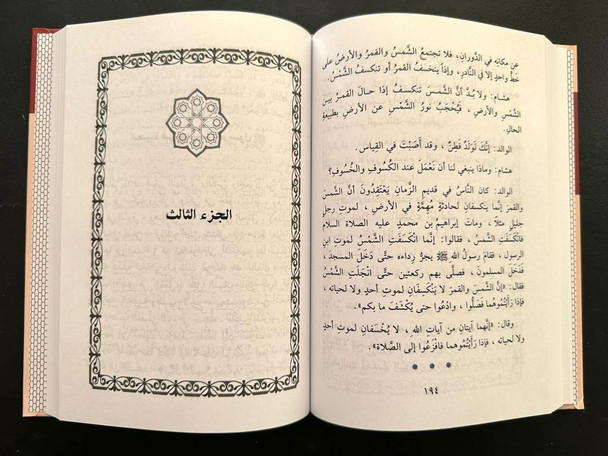 عن مكانِه في الدَّورانِ، فلا تجتمعُ الشَّمسُ والقمرُ والأرضُ على
خطٍّ واحدٍ إلا في النَّادرِ، وإذاً ينخسفُ القمرُ أو تنكسفُ الشَّمْسُ.
هشام: ولا بُدَّ أنَّ الشَّمسَ تنكسفُ إذَا حالَ القمرُ بينَ
الشَّمْسِ والأَرْضِ ، فَيُحْجَبُ نورُ الشَّمْسِ عن الأَرْضِ بطبيعةِ
الحالِ.
الوالد: إِنَّكَ لَوَلَدٌ فَطِنٌ ، وقد أَصَبْتَ في القياسِ.
هشام: وماذا ينبغي لنا أن نَعْمَلَ عند الكُسوفِ والخُسُوفِ؟
الوالد: كان النَّاسُ في قديمِ الزَّمانِ يَعْتَقِدُونَ أنَّ الشَّمسَ
والقمرَ إنَّما ينكسفانِ لحادثةٍ مُهِمَّةٍ في الأَرْضِ ، لموتِ رجلٍ
جليلٍ مثلاً ، وماتَ إبراهيمُ بن محمدٍ عليه الصلاة السلام
فانْكَسَفَتِ الشَّمْسُ، فقالوا: إنَّما انْكَسَفَتِ الشَّمْسُ لموتِ ابنِ
الرسولِ ، فقامَ رسولُ اللهِ ﷺ يجرُّ رِداءه حتَّى دَخَلَ المسجدَ ،
فدَخَلَ المسلمونَ، فصلَّى بهم ركعتين حتَّى انْجَلَتِ الشَّمْسُ
فقال: «إنَّ الشَّمسَ والقمرَ لا يَنْكَسِفَانِ لموتِ أحدٍ ولا لحياتِه ،
فإذا رَأَيْتُمُوهما فَصَلُّوا ، وادْعُوا حتى يُكْشَفَ ما بكم».
وقال: «إنَّهما آيتانِ من آياتِ اللهِ ، لا يُخْسَفانِ لموتِ أحدٍ
ولا لحياتِه ، فإذا رَأَيْتُموهما فافْزَعُوا إلى الصَّلاةِ».
١٩٤
الجزء الثالث